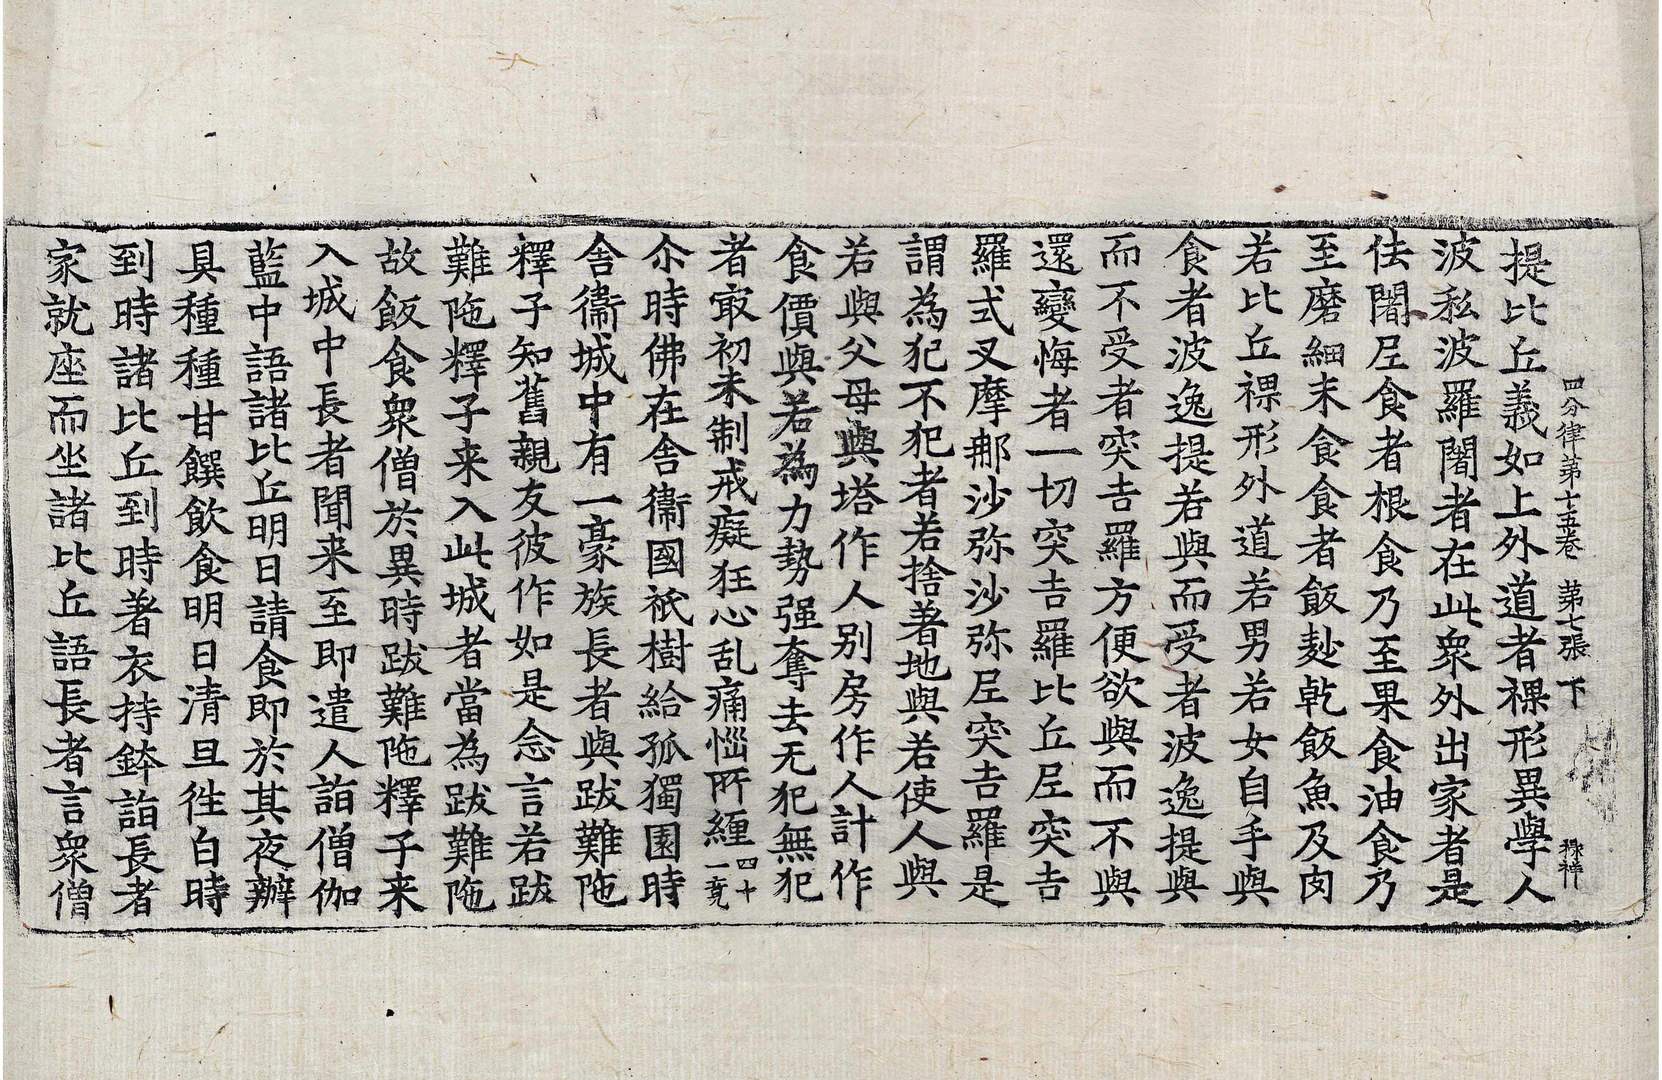 四分律第十五卷 第七張 下 祿祥
提比丘義如上外道者裸形異學人
波私波羅闍者在此衆外出家者是
佉闍尼食者根食乃至果食油食乃
至磨細末食食者飯麨乾飯魚及肉
若比丘裸形外道若男若女自手與
食者波逸提若與而受者波逸提與
而不受者突吉羅方便欲與而不與
還變悔者一切突吉羅比丘尼突吉
羅式叉摩那沙弥沙弥尼突吉羅是
謂為犯不犯者若捨著地與若使人與
若與父母與塔作人別房作人計作
食價與若為力勢强奪去无犯無犯
者冣初未制戒癡狂心乱痛惱所纏四十一竟
尒時佛在舍衛國祇樹給孤獨園時
舍衛城中有一豪族長者與跋難陁
釋子知舊親友彼作如是念言若跋
難陁釋子来入此城者當為跋難陁
故飯食衆僧於異時跋難陁釋子来
入城中長者聞来至即遣人詣僧伽
藍中語諸比丘明日請食即於其夜辦
具種種甘饌飲食明日清旦往白時
到時諸比丘到時著衣持鉢詣長者
家就座而坐諸比丘語長者言衆僧